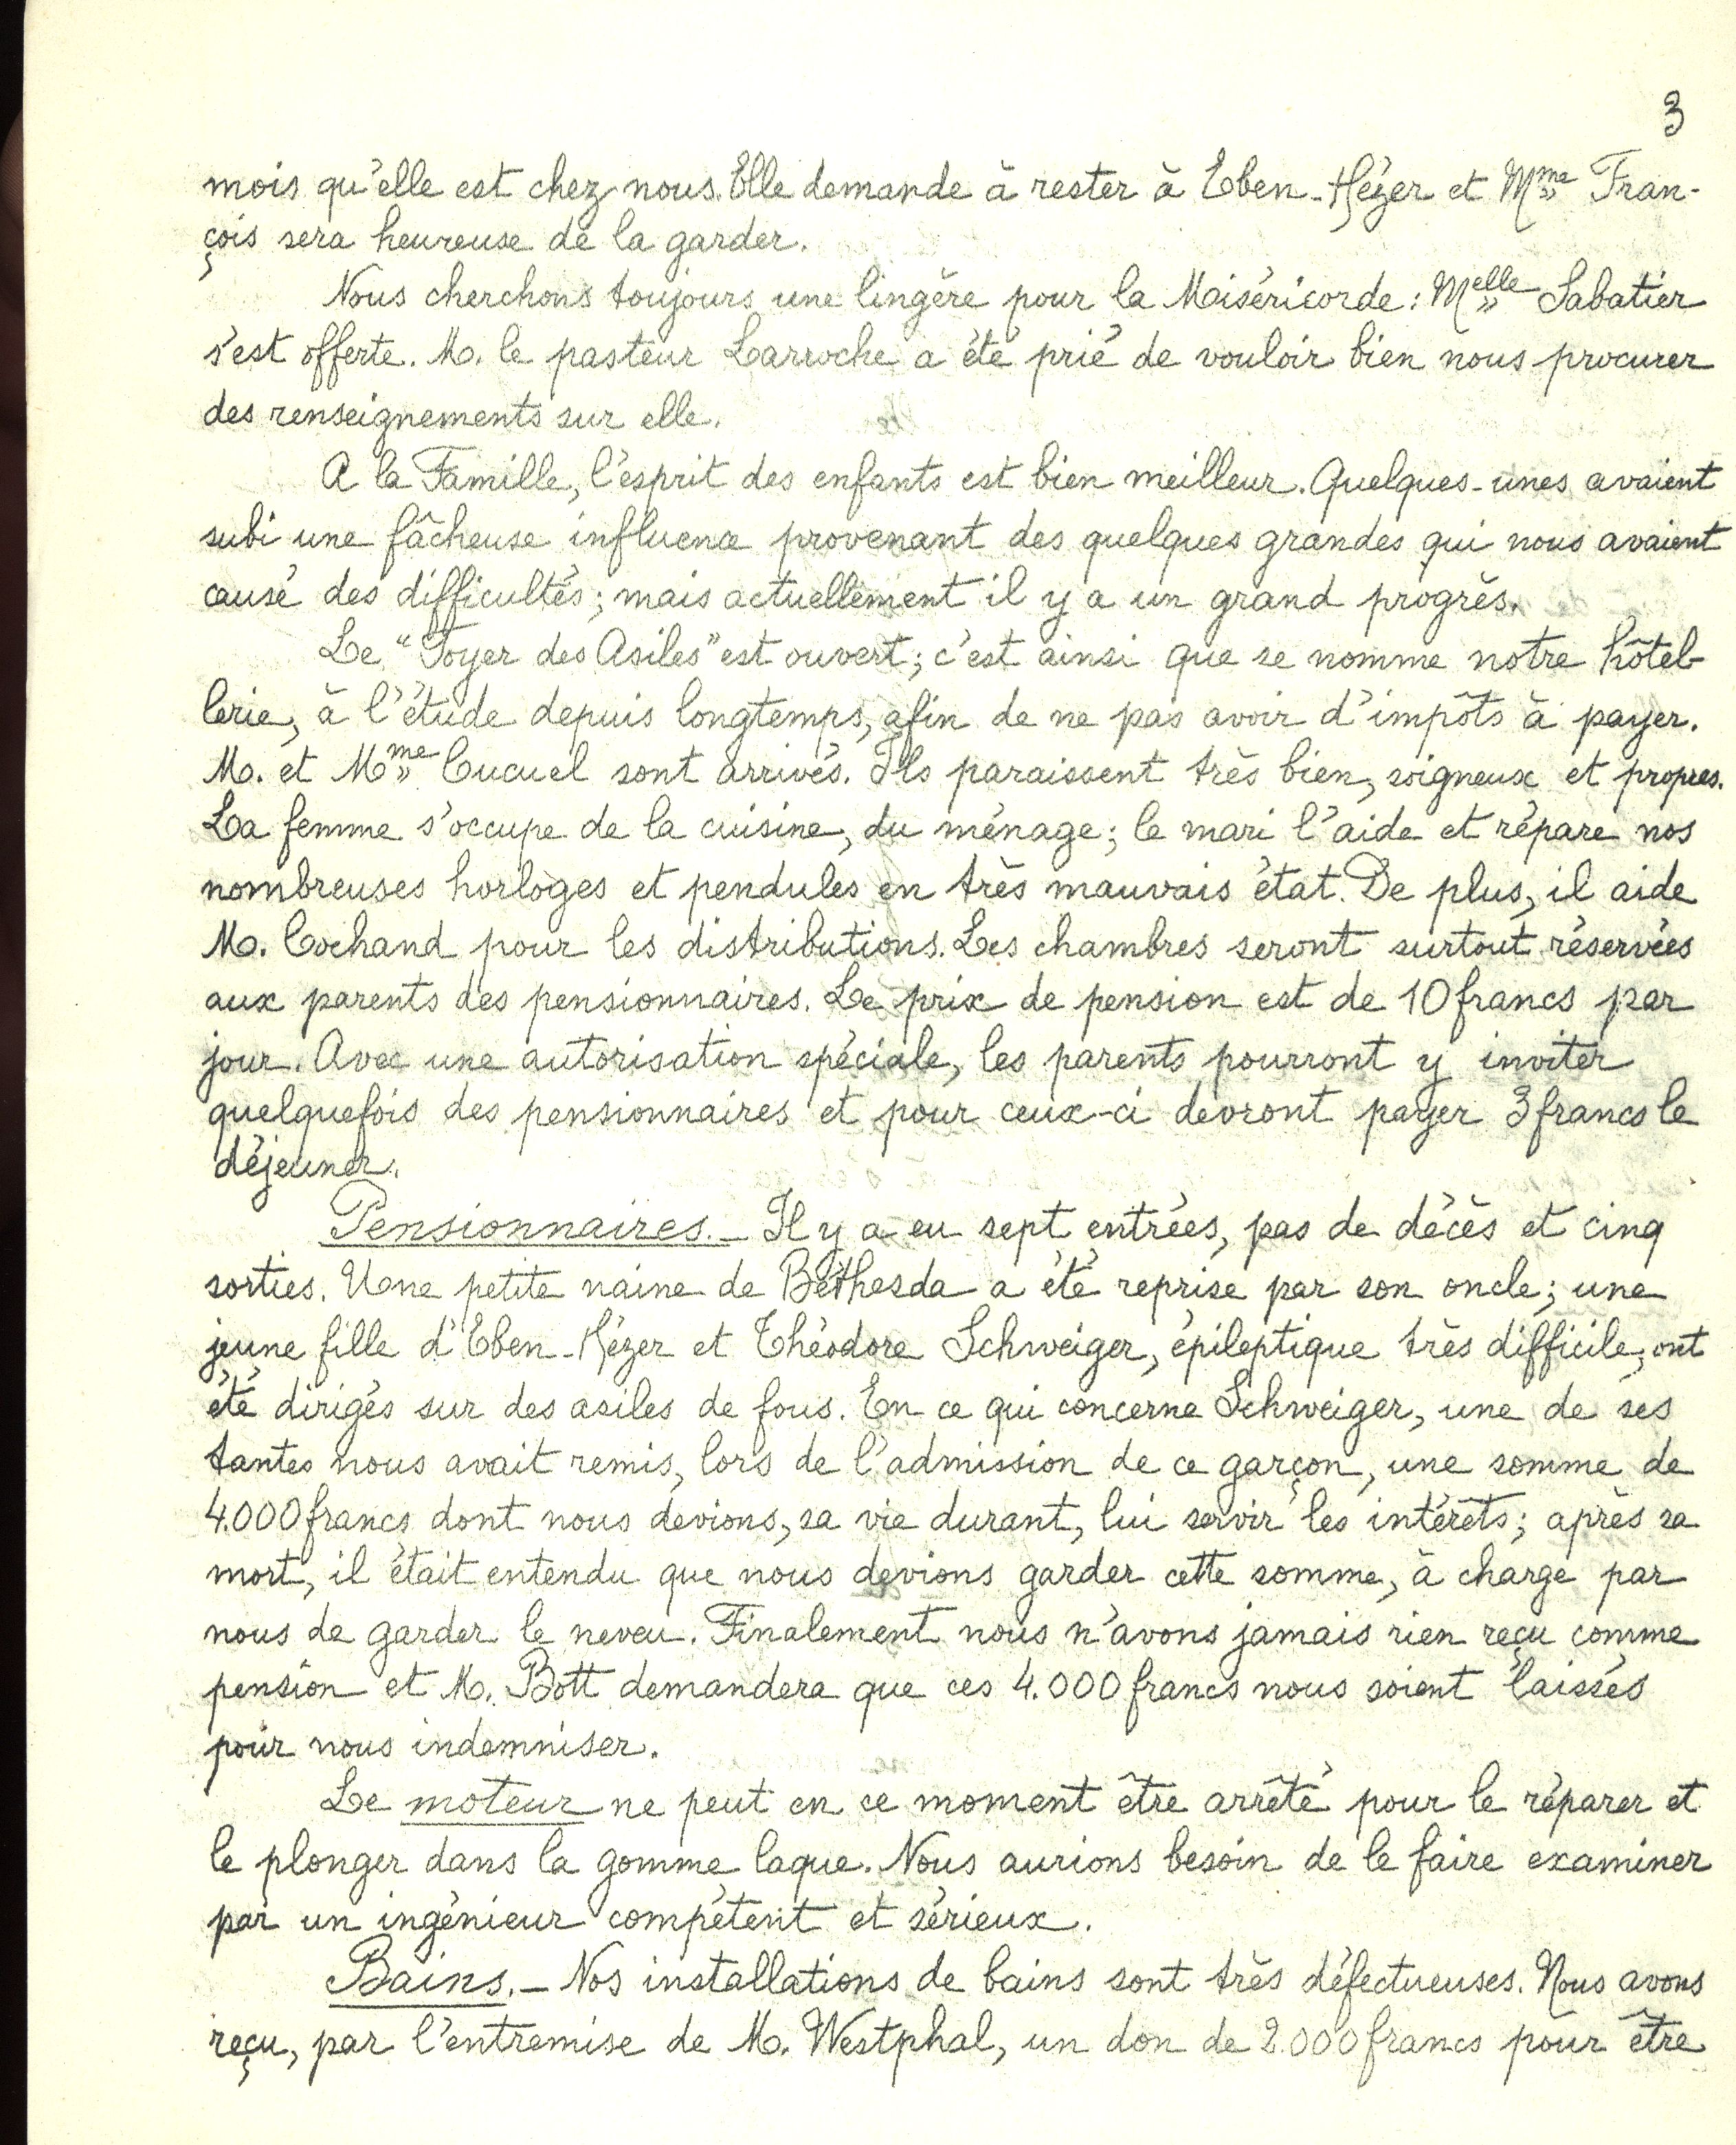 3
mois qu'elle est chez nous. Elle demande à rester à Eben-Hézer et Mme Fran-
çois sera heureuse de la garder.
Nous cherchons toujours une lingère pour la Miséricorde : Melle Sabatier
s'est offerte. M. le pasteur Larroche a été prié de vouloir bien nous procurer
des renseignements sur elle.
A la Famille, l'esprit des enfants est bien meilleur. Quelques-unes avaient
subi une fâcheuse influence provenant des quelques grandes qui nous avaient
causé des difficultés ; mais actuellement il y a un grand progrès.
Le "Foyer des Asiles" est ouvert ; c'est ainsi que se nomme notre hôtel-
lerie, à l'étude depuis longtemps, afin de ne pas avoir d'impôts à payer.
M. et Mme Cucuel sont arrivés. Ils paraissent très bien, soigneux et propres.
La femme s'occupe de la cuisine, du ménage ; le mari l'aide et répare nos
nombreuses horloges et pendules en très mauvais état. De plus, il aide
M. Cochand pour les distributions. Les chambres seront surtout réservées
aux parents des pensionnaires. Le prix de pension est de 10 francs par
jour. Avec une autorisation spéciale, les parents pourront y inviter
quelquefois des pensionnaires et pour ceux-ci devront payer 3 francs le
déjeuner.
Pensionnaires. - Il y a eu sept entrées, pas de décès et cinq
sorties. Une petite naine de Béthesda a été reprise par son oncle ; une
jeune fille d'Eben-Hézer et Théodore Schweiger, épileptique très difficile, ont
été dirigés sur des asiles de fous. En ce qui concerne Schweiger, une de ses
tantes nous avait remis, lors de l'admission de ce garçon, une somme de
4.000 francs dont nous devions, sa vie durant, lui servir les intérêts ; après sa
mort, il était entendu que nous devions garder cette somme, à charge par
nous de garder le neveu. Finalement nous n'avons jamais rien reçu comme
pension et M. Bott demandera que ces 4.000 francs nous soient laissés
pour nous indemniser.
Le moteur ne peut en ce moment être arrêté pour le réparer et
le plonger dans la gomme laque. Nous aurions besoin de le faire examiner
par un ingénieur compétent et sérieux.
Bains. - Nos installations de bains sont très défectueuses. Nous avons
reçu, par l'entremise de M. Westphal, un don de 2.000 francs pour être